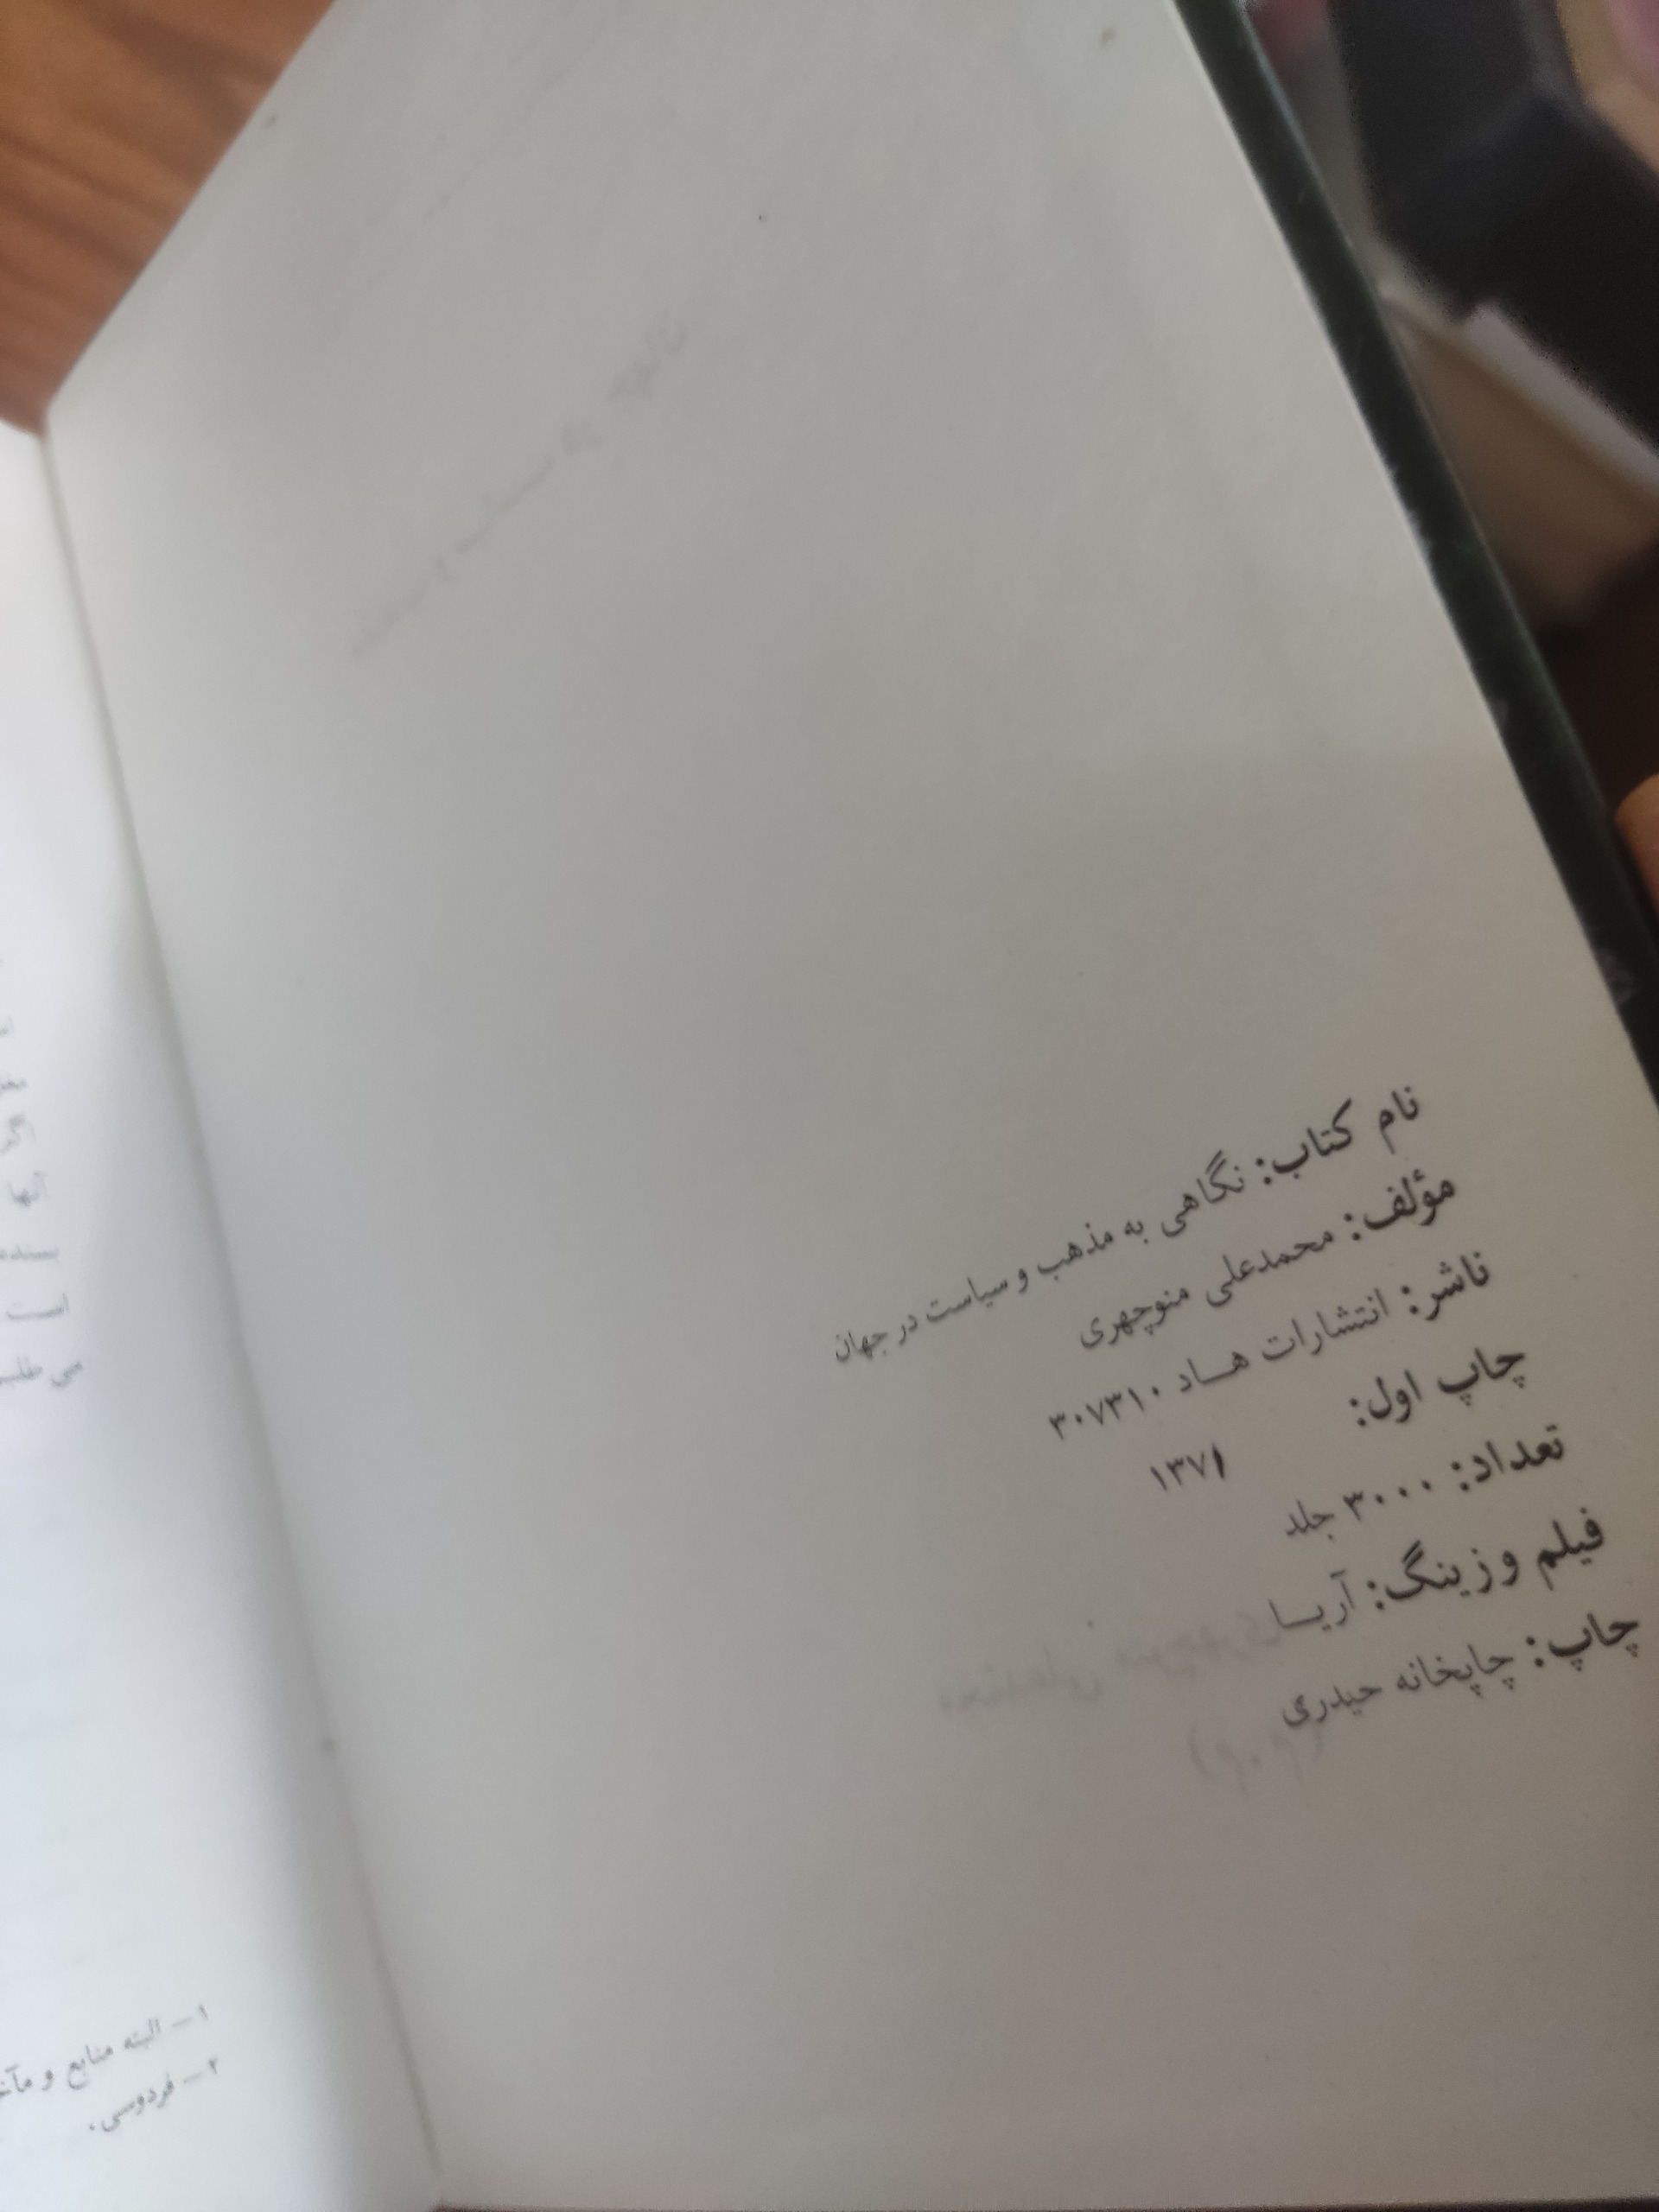 نام کتاب: نگاهی به مذهب و سیاست در جهان
مؤلف: محمدعلی منوچهری
ناشر: انتشارات هـاد ۳۰۷۳۱۰
چاپ اول: ۱۳۷۱
تعداد: ۳۰۰۰ جلد
فیلم و زینگ: آریـا
چاپ: چاپخانه حیدری
اگر
آنها
است
می طلبـ
۱ــ البته منابع و مآخـ
۲ــ فردوسی.